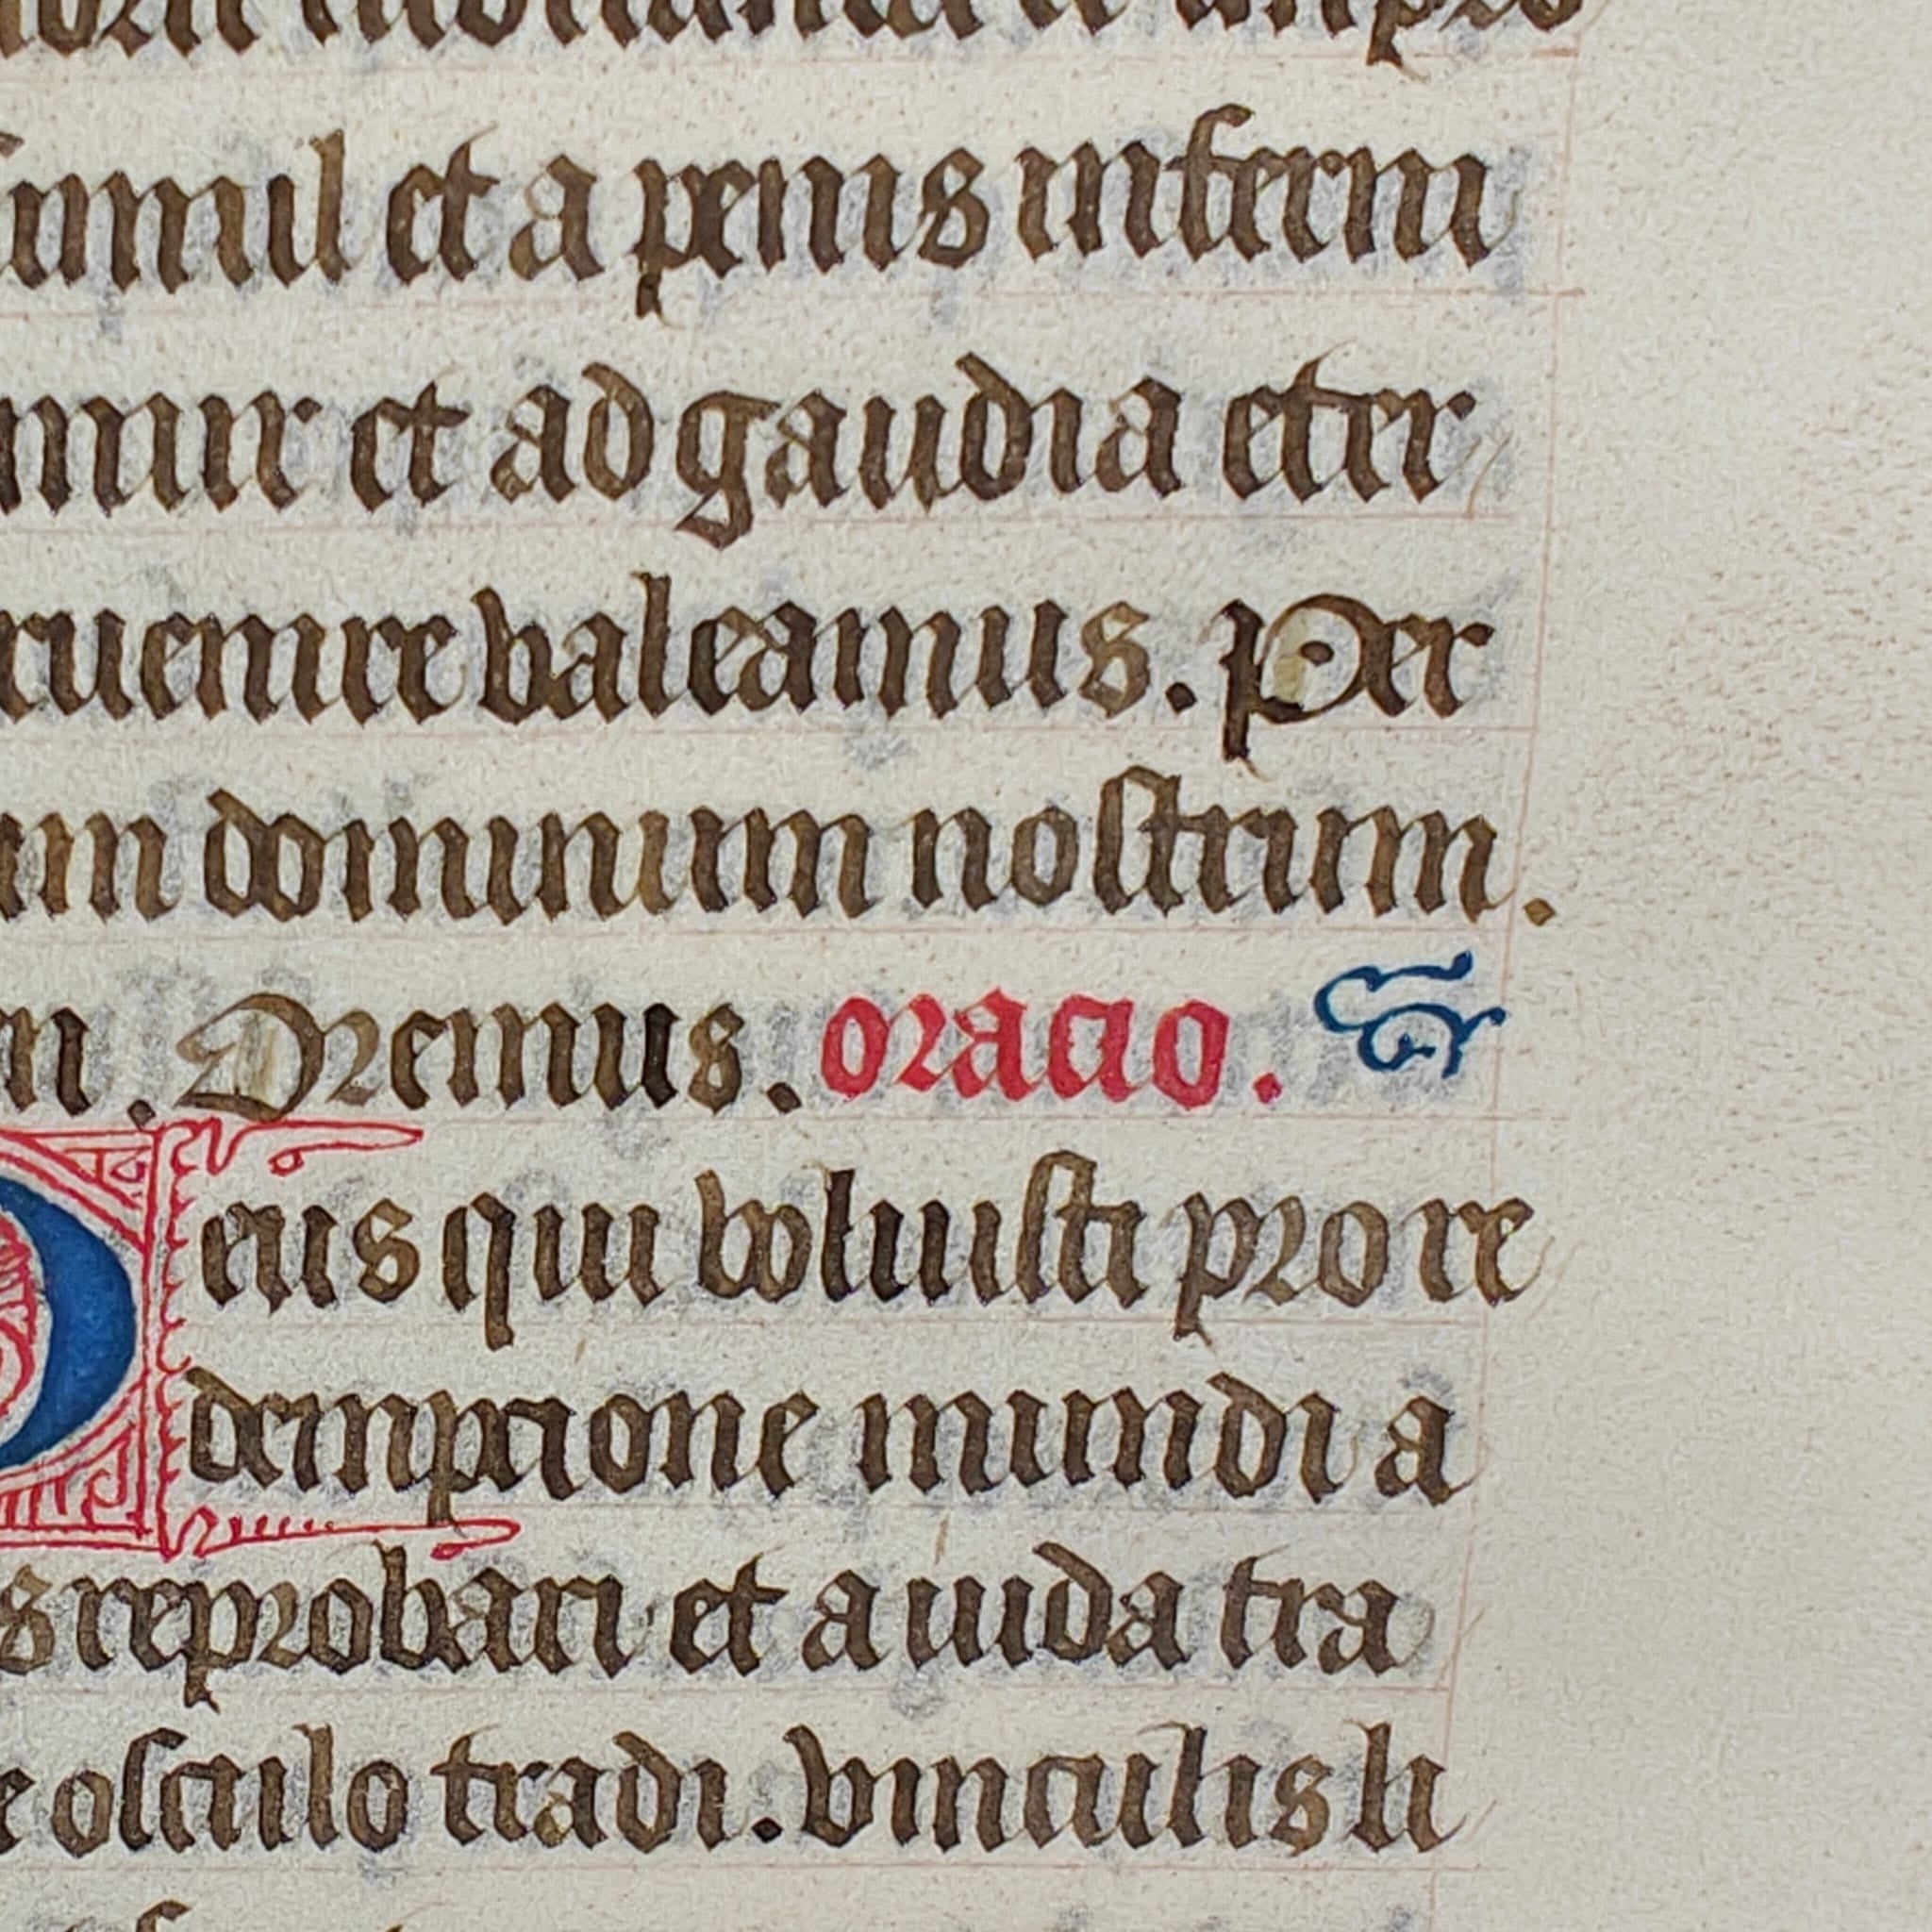 simul et a penis inferni
mur et ad gaudia eter
ruenire valeamus. Per
um dominum nostrum.
en. Oremus. oracio.
Deus qui voluisti pro re
dempcione mundi a
s reprobari et a iuda tra
e osculo tradi. vinculis li